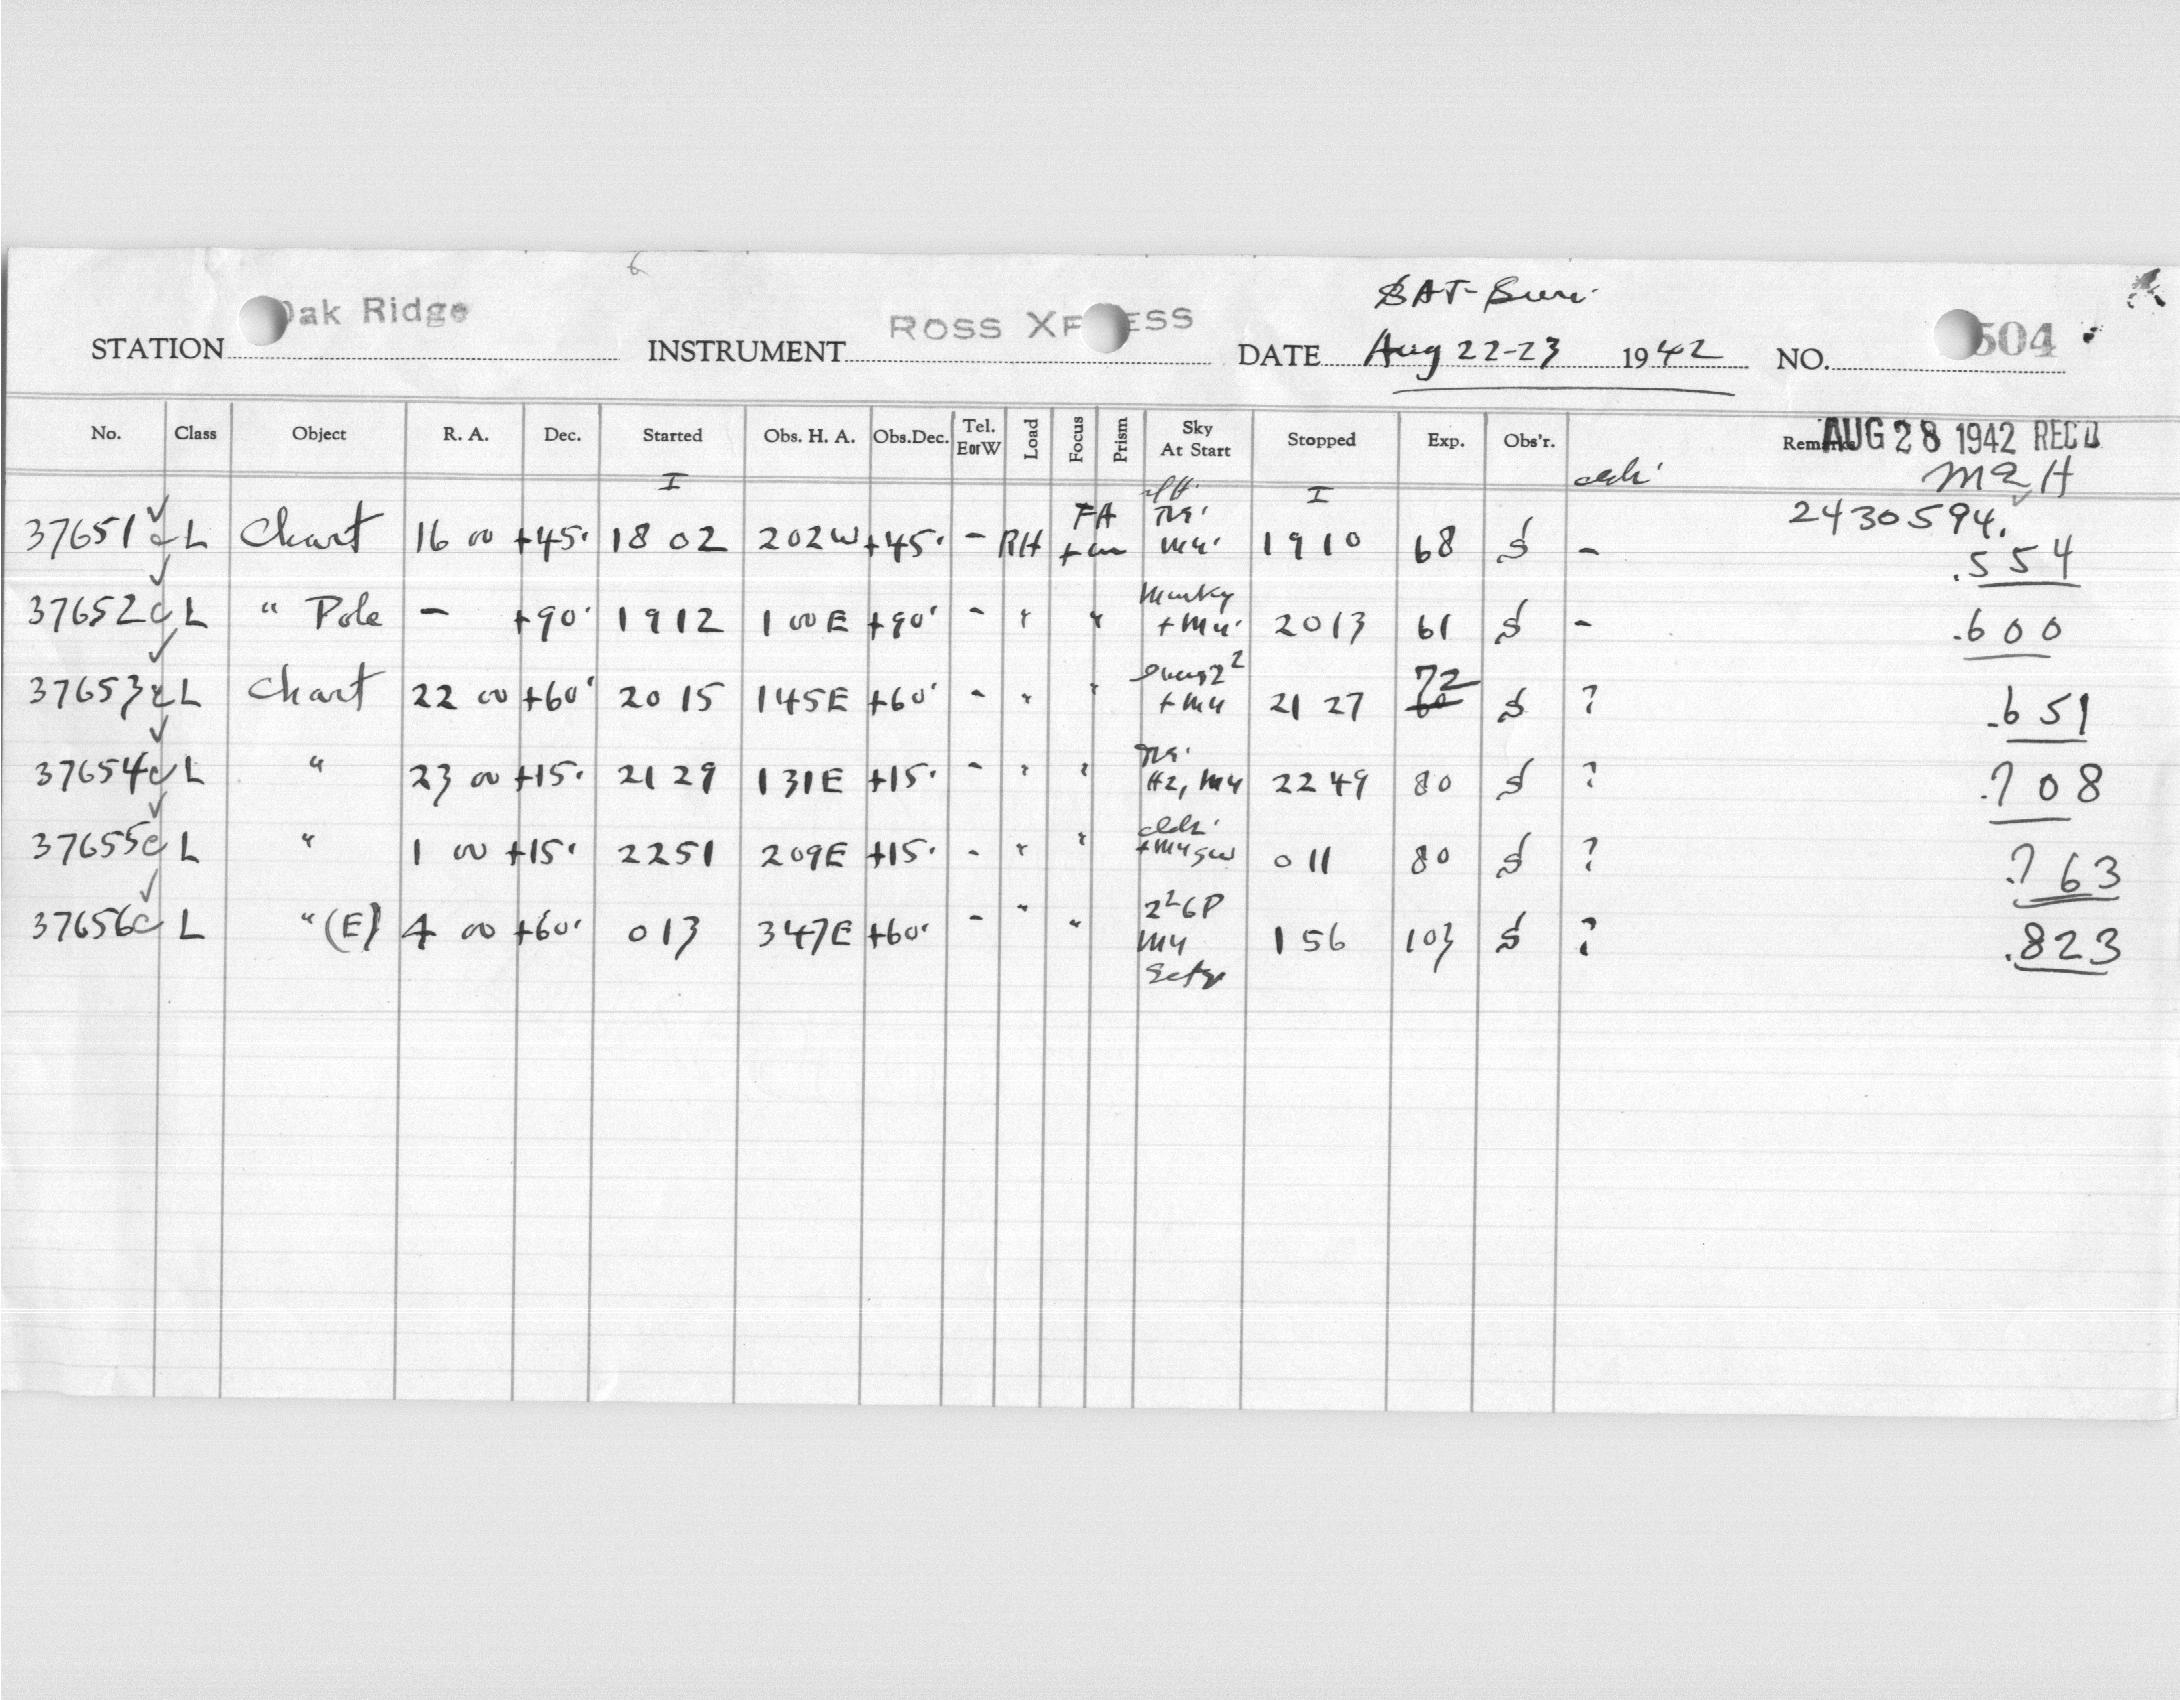 SAT-Sun.
STATION Oak Ridge INSTRUMENT ROSS XPRESS DATE Aug 22-23 1942 NO. 504
No. Class Object R. A. Dec. Started Obs. H. A. Obs.Dec. Tel. EorW Load Focus Prism Sky At Start Stopped Exp. Obs'r. Remarks
AUG 28 1942 REC'D
I I
37651c L Chart 16 00 +45° 18 02 202W +45° - RH FA 19 10 68 S - 2430594.
.554
37652c L " Pole - +90° 19 12 1 00E +90° - " " 20 13 61 S - .600
37653c L Chart 22 00 +60° 20 15 145E +60° - " " 21 27 72 60 S ? .651
37654c L " 23 00 +15° 21 29 131E +15° - " " Hz, M4 22 49 80 S ? .708
37655c L " 1 00 +15° 22 51 209E +15° - " " 0 11 80 S ? .763
37656c L " (E) 4 00 +60° 0 13 347E +60° - " " 1 56 103 S ? .823